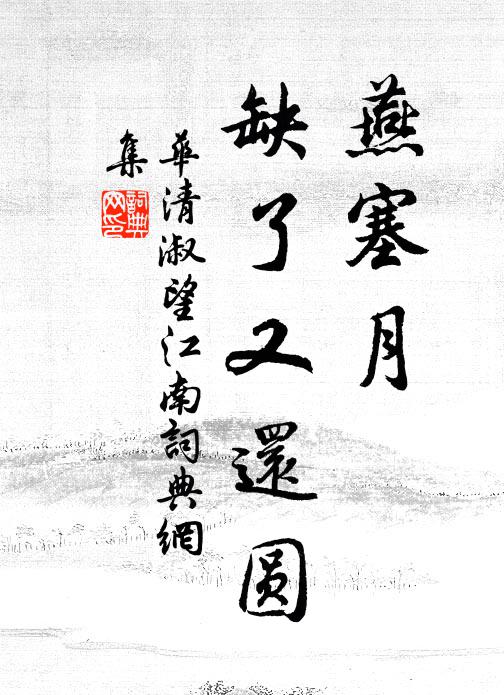 燕塞月
缺了又還圓
華清淑望江南詞典網
集
詞典网印